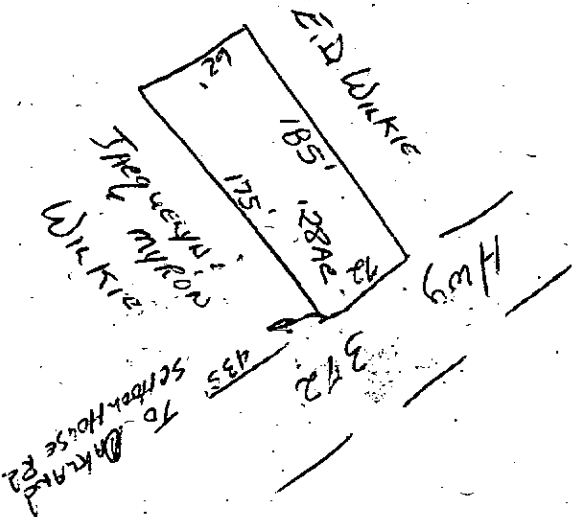 E.D. WILKIE
185'
.28 AC.
175'
JACQUELYN &
MYRON
WILKIE
72
Hwy
372
435
TO OAKLAND
SCHOOL HOUSE RD.